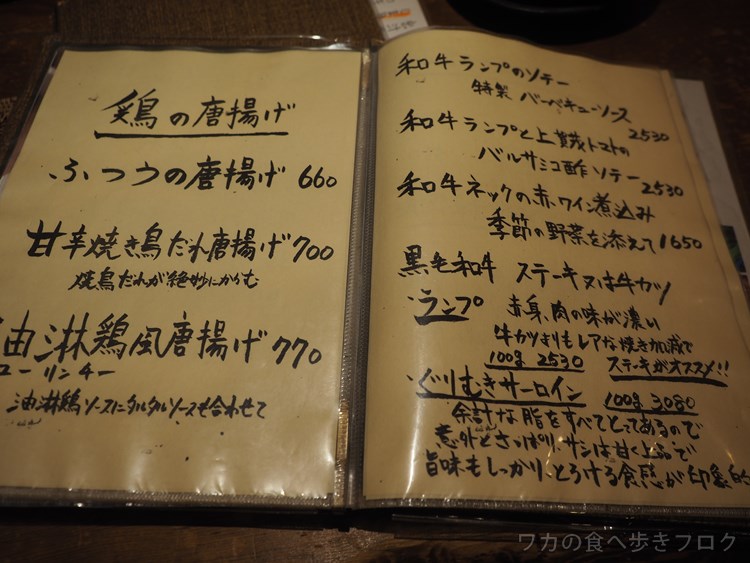 鶏の唐揚げ
・ふつうの唐揚げ 660
甘辛焼き鳥だれ唐揚げ 700
焼鳥だれが絶妙にからむ
油淋鶏風唐揚げ 770
ユーリンチー
油淋鶏ソースにタルタルソースも合わせて
和牛ランプのソテー
特製 バーベキューソース
2530
和牛ランプと上賀茂トマトの
バルサミコ酢ソテー 2530
和牛ネックの赤ワイン煮込み
季節の野菜を添えて 1650
黒毛和牛 ステーキ又は牛カツ
・ランプ 赤身、肉の味が濃い
牛カツよりもレアな焼き加減で
100g 2530 ステーキがオススメ!!
・ぐりむきサーロイン 100g 3,080
余計な脂をすべてとってあるので
意外とさっぱり、サシは甘く上品で
旨味もしっかり、とろける食感が印象的
ワカの食べ歩きブログ